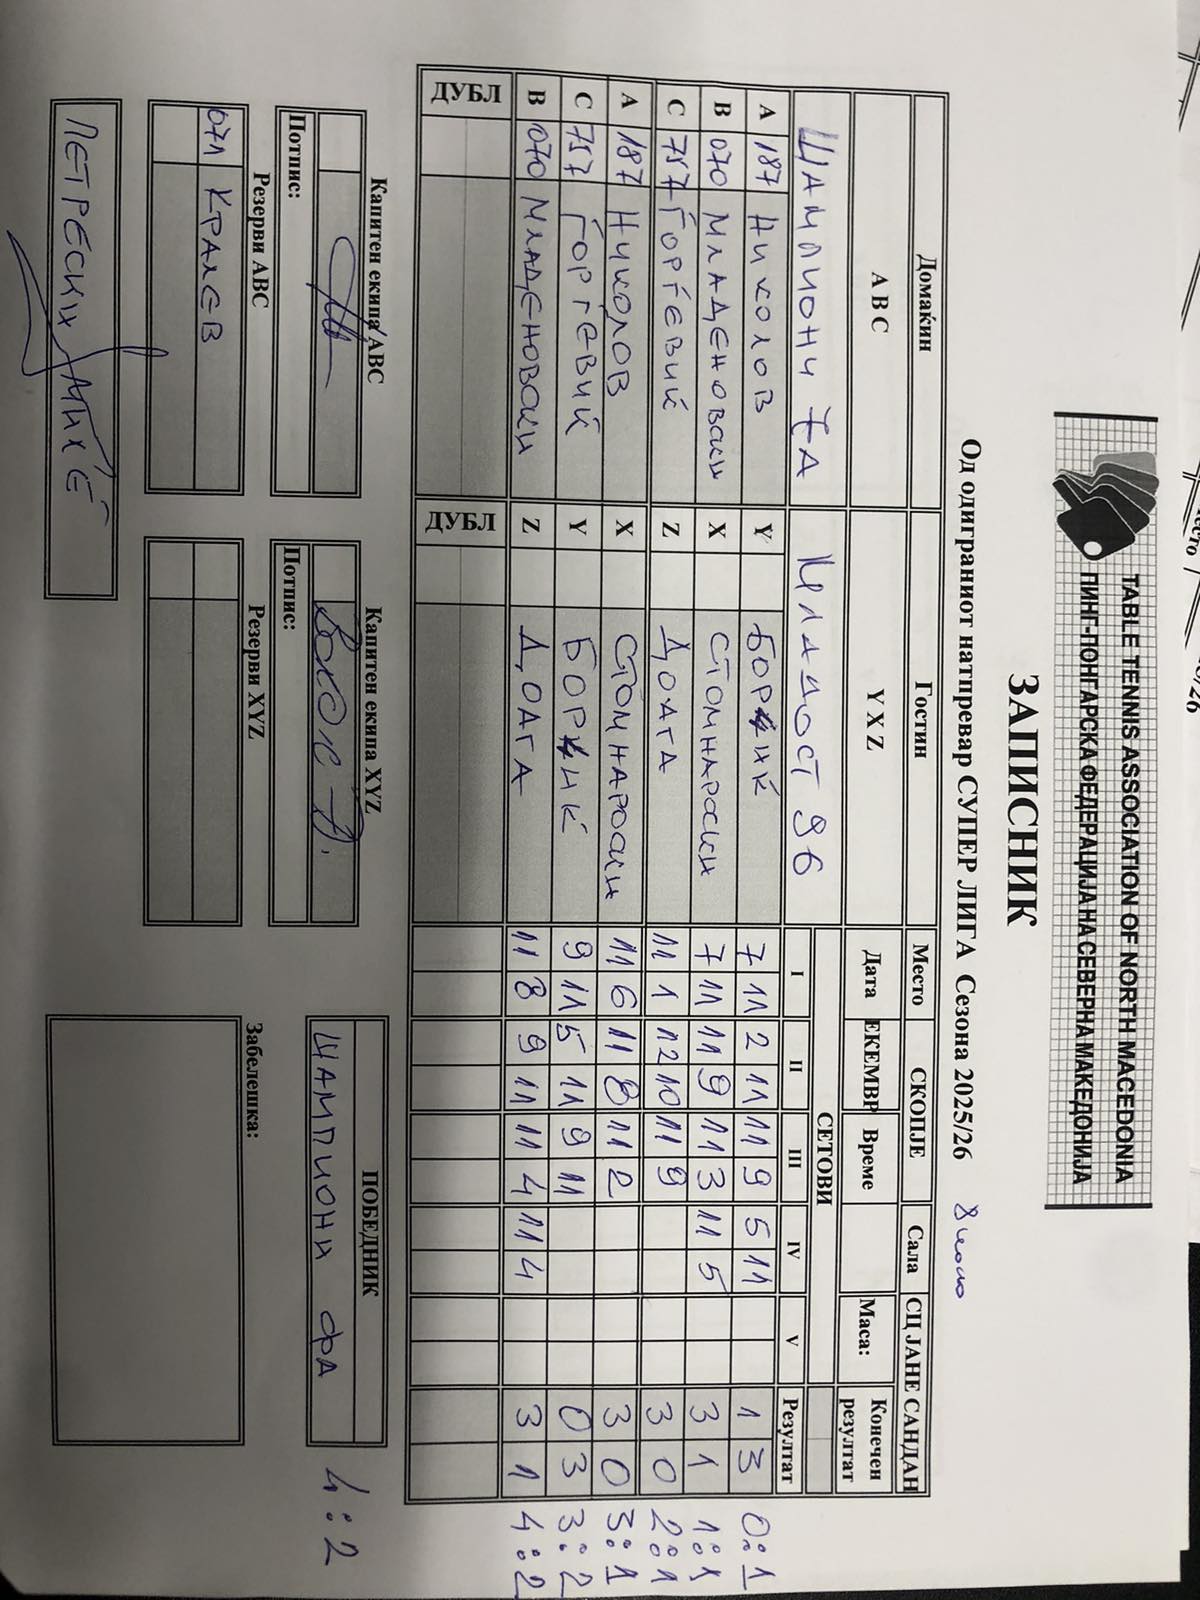 TABLE TENNIS ASSOCIATION OF NORTH MACEDONIA
ПИНГ-ПОНГАРСКА ФЕДЕРАЦИЈА НА СЕВЕРНА МАКЕДОНИЈА
ЗАПИСНИК
Од одиграниот натпревар СУПЕР ЛИГА Сезона 2025/26 8 коло
Домаќин Гостин Место СКОПЈЕ Сала СЦ ЈАНЕ САНДАН
A B C Y X Z Дата ЕКЕМВР Време Маса: Конечен резултат
ШАМПИОНИ ФА МЛАДОСТ 96 СЕТОВИ
I II III IV V Резултат
A 187 НИКОЛОВ Y БОРКИЌ 7 11 2 11 11 9 5 11 1 3 0:1
B 070 МЛАДЕНОВСКИ X СТОМНАРОСКИ 7 11 11 9 11 3 11 5 3 1 1:1
C 757 ЃОРЃЕВИЌ Z ДОАГА 11 1 12 10 11 9 3 0 2:1
A 187 НИКОЛОВ X СТОМНАРОСКИ 11 6 11 8 11 2 3 0 3:1
C 757 ЃОРЃЕВИЌ Y БОРКИЌ 9 11 5 11 9 11 0 3 3:2
B 070 МЛАДЕНОВСКИ Z ДОАГА 11 8 9 11 11 4 11 4 3 1 4:2
ДУБЛ ДУБЛ
Капитен екипа ABC Капитен екипа XYZ ПОБЕДНИК
ШАМПИОНИ ФА 4:2
Потпис: Потпис:
Резерви ABC Резерви XYZ Забелешка:
071 КРАЛЕВ
ПЕТРЕСКИ МИХЕ